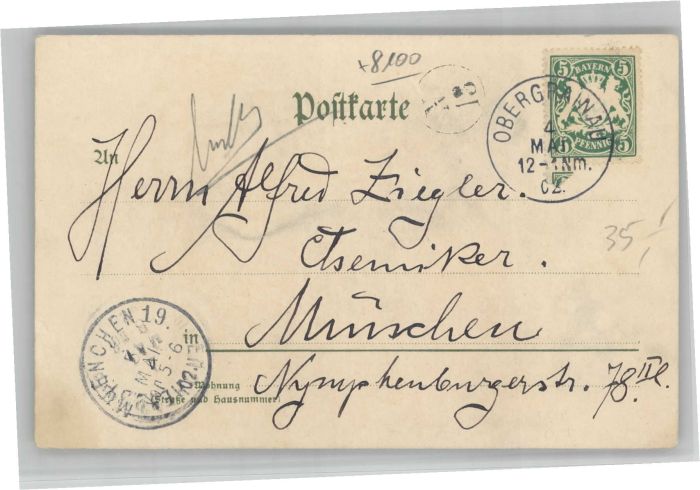 +8100
Postkarte
BAYERN
5 5
PFENNIG
5 5
OBERGRAINAU
4
MAI
12-1Nm.
02.
An
Herrn Alfred Ziegler.
Chemiker.
35,-
in München
MUENCHEN 19.
Wohnung
(Straße und Hausnummer)
Nymphenburgerstr. 78 II l.